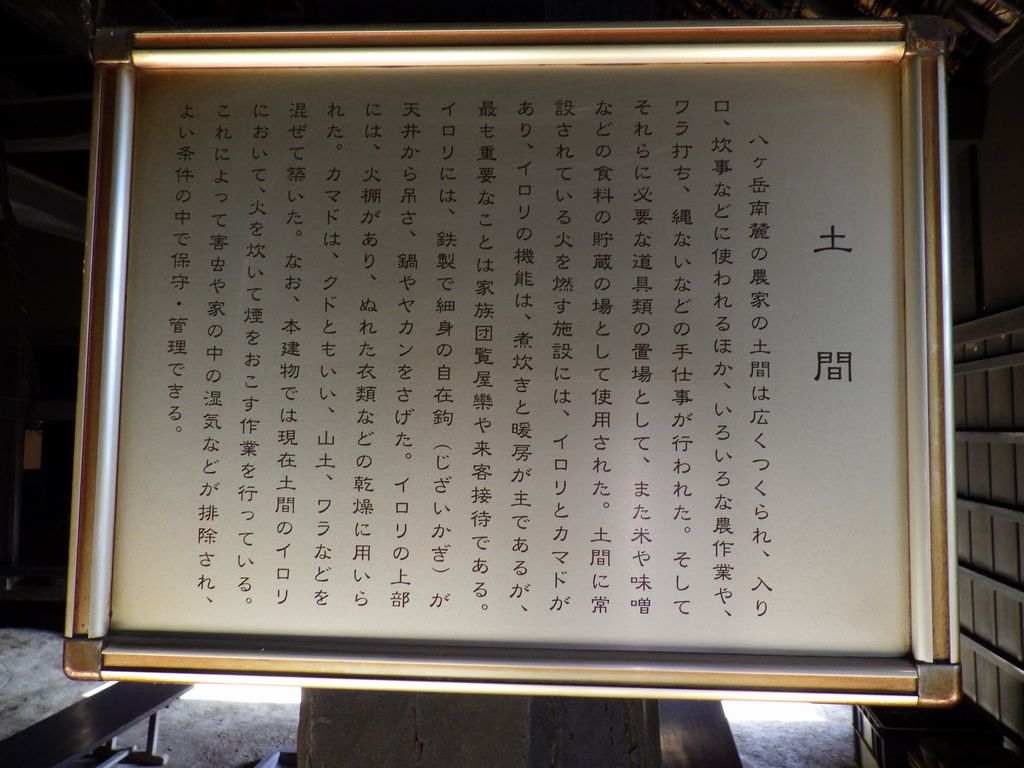 土間
八ヶ岳南麓の農家の土間は広くつくられ、入り
口、炊事などに使われるほか、いろいろな農作業や、
ワラ打ち、縄ないなどの手仕事が行われた。そして
それらに必要な道具類の置場として、また米や味噌
などの食料の貯蔵の場として使用された。土間に常
設されている火を燃す施設には、イロリとカマドが
あり、イロリの機能は、煮炊きと暖房が主であるが、
最も重要なことは家族団覧屋欒や来客接待である。
イロリには、鉄製で細身の自在鉤（じざいかぎ）が
天井から吊さ、鍋やヤカンをさげた。イロリの上部
には、火棚があり、ぬれた衣類などの乾燥に用いら
れた。カマドは、クドともいい、山土、ワラなどを
混ぜて築いた。なお、本建物では現在土間のイロリ
において、火を炊いて煙をおこす作業を行っている。
これによって害虫や家の中の湿気などが排除され、
よい条件の中で保守・管理できる。